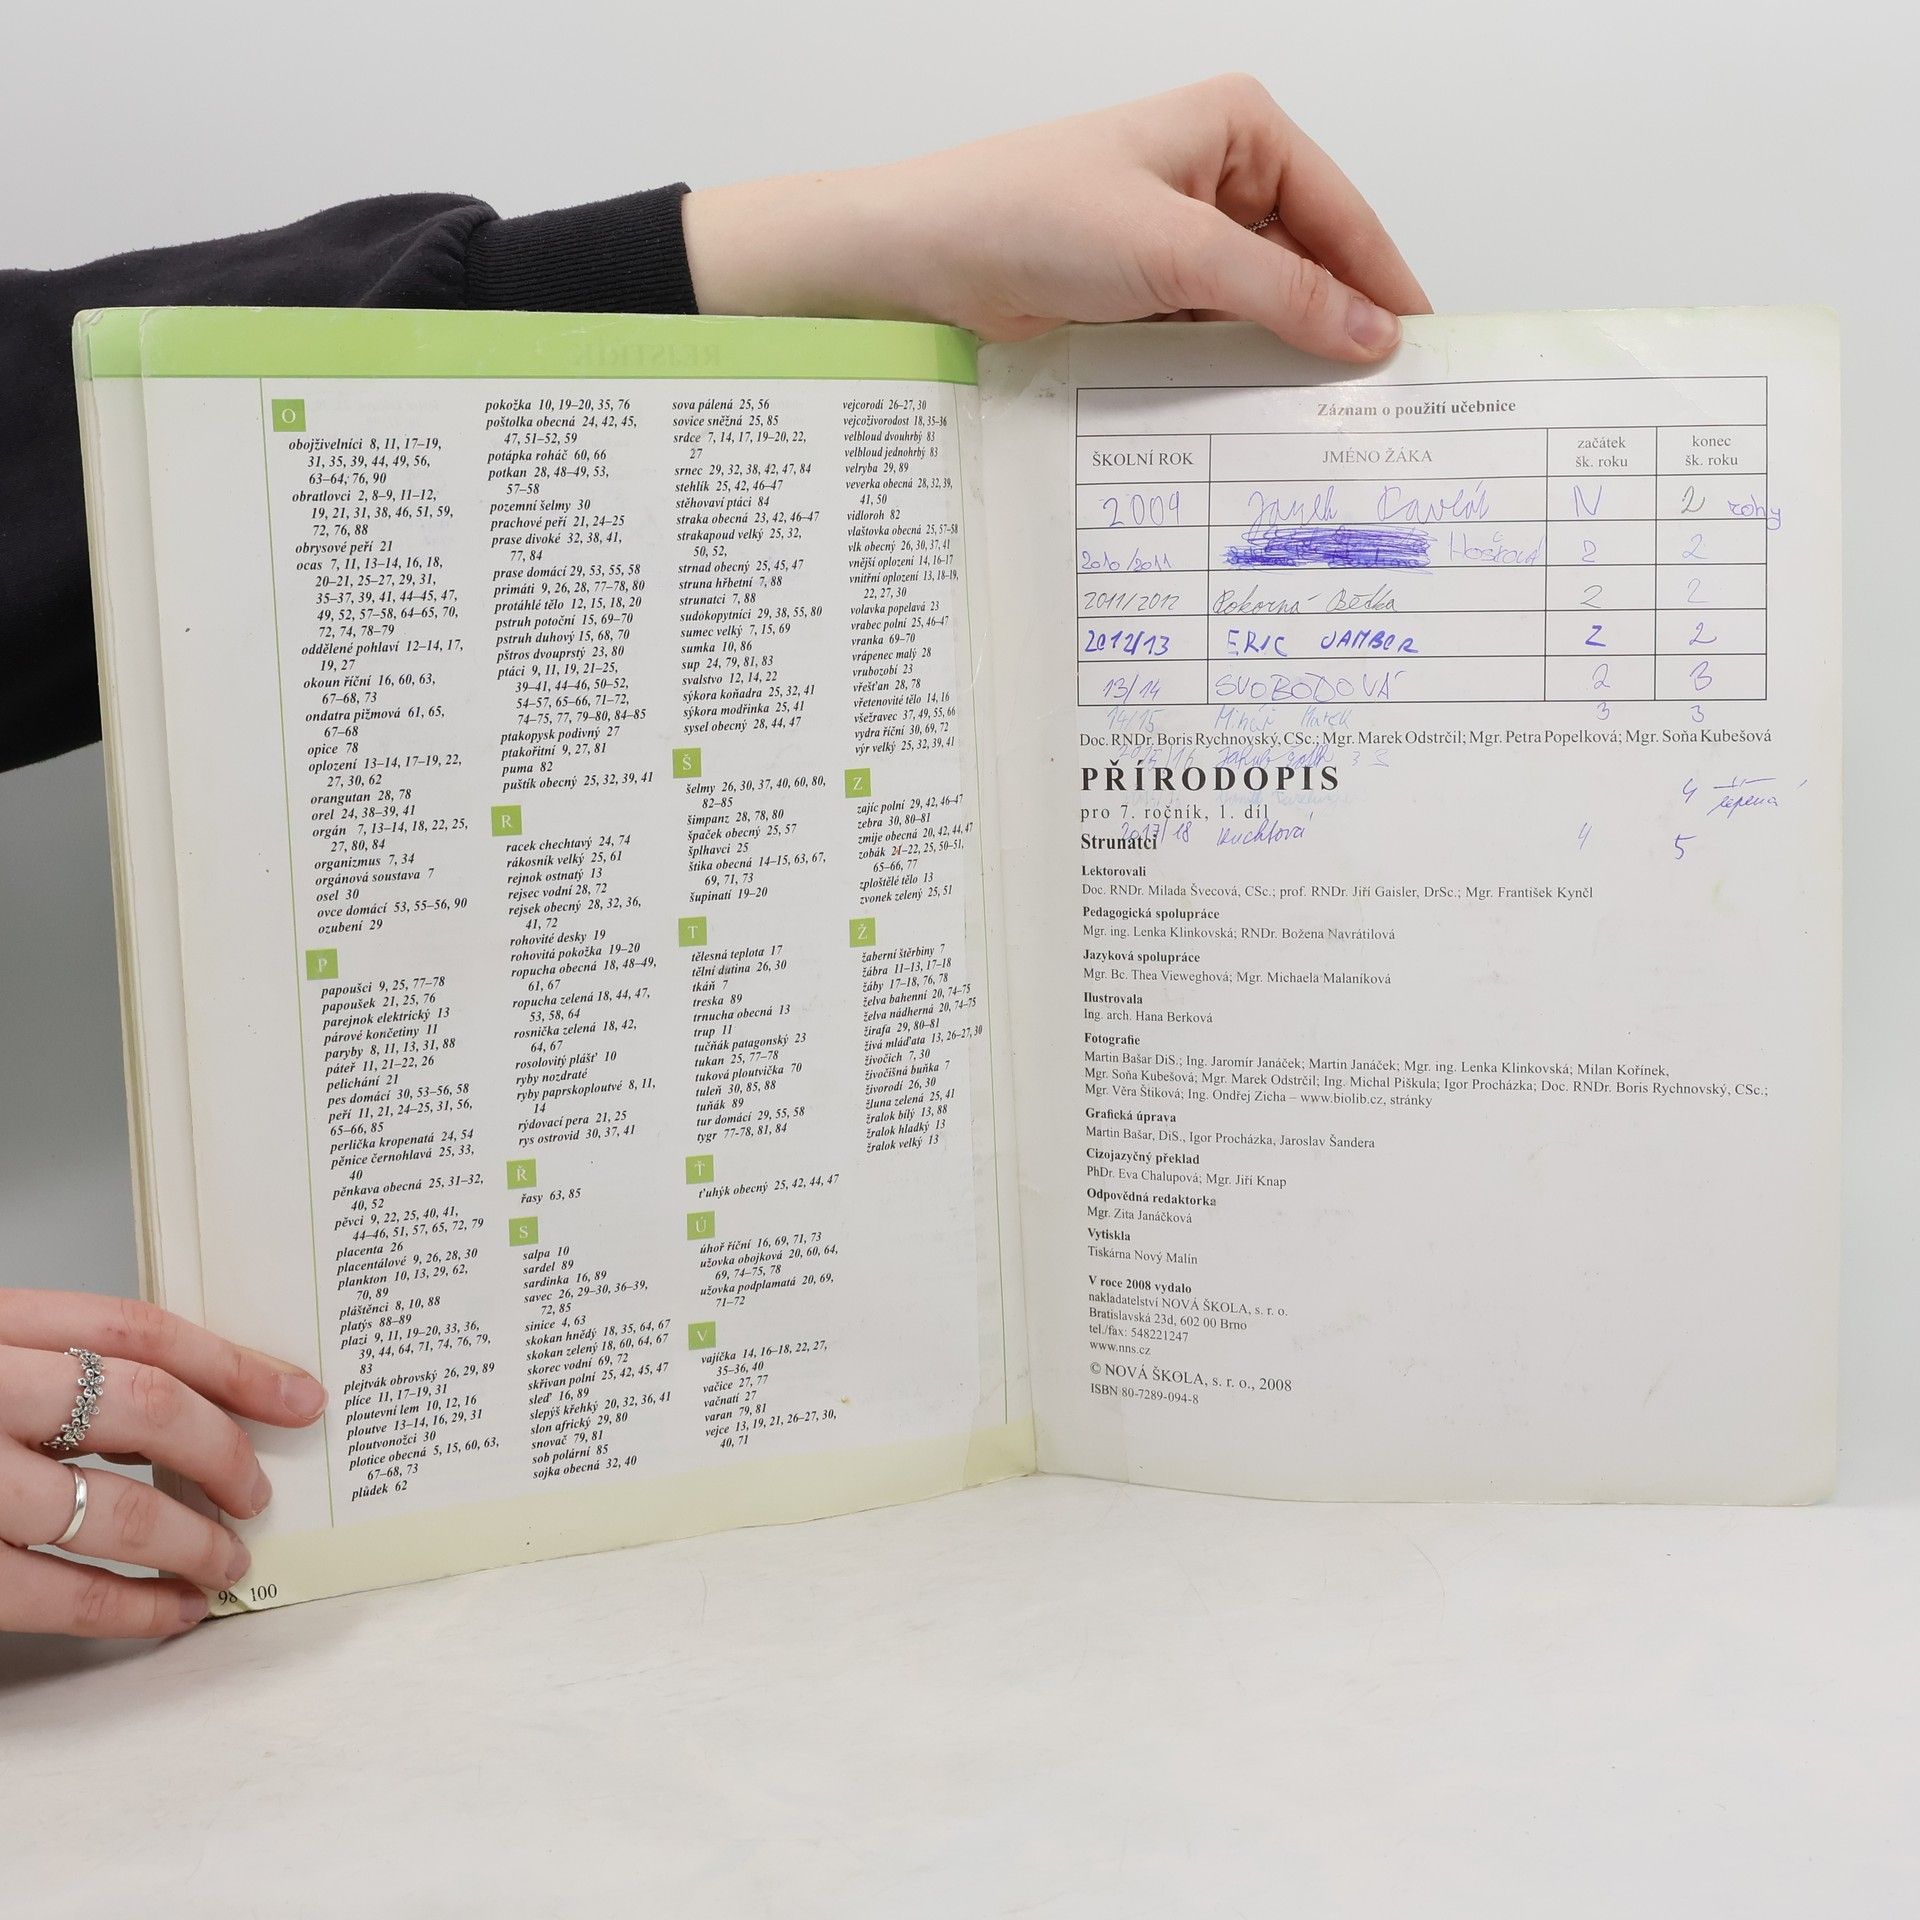 O
obojživelníci 8, 11, 17–19,
31, 35, 39, 44, 49, 56,
63–64, 76, 90
obratlovci 2, 8–9, 11–12,
19, 21, 31, 38, 46, 51, 59,
72, 76, 88
obrysové peří 21
ocas 7, 11, 13–14, 16, 18,
20–21, 25–27, 29, 31,
35–37, 39, 41, 44–45, 47,
49, 52, 57–58, 64–65, 70,
72, 74, 78–79
oddělené pohlaví 12–14, 17,
19, 27
okoun říční 16, 60, 63,
67–68, 73
ondatra pižmová 61, 65,
67–68
opice 78
oplození 13–14, 17–19, 22,
27, 30, 62
orangutan 28, 78
orel 24, 38–39, 41
orgán 7, 13–14, 18, 22, 25,
27, 80, 84
organizmus 7, 34
orgánová soustava 7
osel 30
ovce domácí 53, 55–56, 90
ozubení 29
P
papoušci 9, 25, 77–78
papoušek 21, 25, 76
parejnok elektrický 13
párové končetiny 11
paryby 8, 11, 13, 31, 88
páteř 11, 21–22, 26
pelichání 21
pes domácí 30, 53–56, 58
peří 11, 21, 24–25, 31, 56,
65–66, 85
perlička kropenatá 24, 54
pěnice černohlavá 25, 33,
40
pěnkava obecná 25, 31–32,
40, 52
pěvci 9, 22, 25, 40, 41,
44–46, 51, 57, 65, 72, 79
placenta 26
placentálové 9, 26, 28, 30
plankton 10, 13, 29, 62,
70, 89
pláštěnci 8, 10, 88
platýs 88–89
plazi 9, 11, 19–20, 33, 36,
39, 44, 64, 71, 74, 76, 79,
83
plejtvák obrovský 26, 29, 89
plíce 11, 17–19, 31
ploutevní lem 10, 12, 16
ploutve 13–14, 16, 29, 31
ploutvonožci 30
plotice obecná 5, 15, 60, 63,
67–68, 73
plůdek 62
pokožka 10, 19–20, 35, 76
poštolka obecná 24, 42, 45,
47, 51–52, 59
potápka roháč 60, 66
potkan 28, 48–49, 53,
57–58
pozemní šelmy 30
prachové peří 21, 24–25
prase divoké 32, 38, 41,
77, 84
prase domácí 29, 53, 55, 58
primáti 9, 26, 28, 77–78, 80
protáhlé tělo 12, 15, 18, 20
pstruh potoční 15, 69–70
pstruh duhový 15, 68, 70
pštros dvouprstý 23, 80
ptáci 9, 11, 19, 21–25,
39–41, 44–46, 50–52,
54–57, 65–66, 71–72,
74–75, 77, 79–80, 84–85
ptakopysk podivný 27
ptakořitní 9, 27, 81
puma 82
puštík obecný 25, 32, 39, 41
R
racek chechtavý 24, 74
rákosník velký 25, 61
rejnok ostnatý 13
rejsec vodní 28, 72
rejsek obecný 28, 32, 36,
41, 72
rohovité desky 19
rohovitá pokožka 19–20
ropucha obecná 18, 48–49,
61, 67
ropucha zelená 18, 44, 47,
53, 58, 64
rosnička zelená 18, 42,
64, 67
rosolovitý plášť 10
ryby nozdraté
ryby paprskoploutvé 8, 11,
14
rýdovací pera 21, 25
rys ostrovid 30, 37, 41
Ř
řasy 63, 85
S
salpa 10
sardel 89
sardinka 16, 89
savec 26, 29–30, 36–39,
72, 85
sinice 4, 63
skokan hnědý 18, 35, 64, 67
skokan zelený 18, 60, 64, 67
skorec vodní 69, 72
skřivan polní 25, 42, 45, 47
sleď 16, 89
slepýš křehký 20, 32, 36, 41
slon africký 29, 80
snovač 79, 81
sob polární 85
sojka obecná 32, 40
sova pálená 25, 56
sovice sněžná 25, 85
srdce 7, 14, 17, 19–20, 22,
27
srnec 29, 32, 38, 42, 47, 84
stehlík 25, 42, 46–47
stěhovaví ptáci 84
straka obecná 23, 42, 46–47
strakapoud velký 25, 32,
50, 52,
strnad obecný 25, 45, 47
struna hřbetní 7, 88
strunatci 7, 88
sudokopytníci 29, 38, 55, 80
sumec velký 7, 15, 69
sumka 10, 86
sup 24, 79, 81, 83
svalstvo 12, 14, 22
sýkora koňadra 25, 32, 41
sýkora modřinka 25, 41
sysel obecný 28, 44, 47
Š
šelmy 26, 30, 37, 40, 60, 80,
82–85
šimpanz 28, 78, 80
špaček obecný 25, 57
šplhavci 25
štika obecná 14–15, 63, 67,
69, 71, 73
šupinatí 19–20
T
tělesná teplota 17
tělní dutina 26, 30
tkáň 7
treska 89
trnucha obecná 13
trup 11
tučňák patagonský 23
tukan 25, 77–78
tuková ploutvička 70
tuleň 30, 85, 88
tuňák 89
tur domácí 29, 55, 58
tygr 77-78, 81, 84
Ť
ťuhýk obecný 25, 42, 44, 47
Ú
úhoř říční 16, 69, 71, 73
užovka obojková 20, 60, 64,
69, 74–75, 78
užovka podplamatá 20, 69,
71–72
V
vajíčka 14, 16–18, 22, 27,
35–36, 40
vačice 27, 77
vačnatí 27
varan 79, 81
vejce 13, 19, 21, 26–27, 30,
40, 71
vejcorodí 26–27, 30
vejcoživorodost 18, 35–36
velbloud dvouhrbý 83
velbloud jednohrbý 83
velryba 29, 89
veverka obecná 28, 32, 39,
41, 50
vidloroh 82
vlaštovka obecná 25, 57–58
vlk obecný 26, 30, 37, 41
vnější oplození 14, 16–17
vnitřní oplození 13, 18–19,
22, 27, 30
volavka popelavá 23
vrabec polní 25, 46–47
vranka 69–70
vrápenec malý 28
vrubozobí 23
vřešťan 28, 78
vřetenovité tělo 14, 16
všežravec 37, 49, 55, 66
vydra říční 30, 69, 72
výr velký 25, 32, 39, 41
Z
zajíc polní 29, 42, 46-47
zebra 30, 80–81
zmije obecná 20, 42, 44, 47
zobák 21–22, 25, 50–51,
65–66, 77
zploštělé tělo 13
zvonek zelený 25, 51
Ž
žaberní štěrbiny 7
žábra 11–13, 17–18
žáby 17–18, 76, 78
želva bahenní 20, 74–75
želva nádherná 20, 74–75
žirafa 29, 80–81
živá mláďata 13, 26–27, 30
živočich 7, 30
živočišná buňka 7
živorodí 26, 30
žluna zelená 25, 41
žralok bílý 13, 88
žralok hladký 13
žralok velký 13
98 100
Záznam o použití učebnice
ŠKOLNÍ ROK JMÉNO ŽÁKA začátek šk. roku konec šk. roku
2009 N 2 rohy
2010/2011 2 2
2011/2012 Pokorná Bětka 2 2
2012/13 ERIC JAMBOR 2 2
13/14 SVOBODOVÁ 2 3
14/15 Marek 3 3
Doc. RNDr. Boris Rychnovský, CSc.; Mgr. Marek Odstrčil; Mgr. Petra Popelková; Mgr. Soňa Kubešová
2015/16 Jakub 3 3
PŘÍRODOPIS
4 lepená
pro 7. ročník, 1. díl
2017/18 Ruchtová 4 5
Strunatci
Lektorovali
Doc. RNDr. Milada Švecová, CSc.; prof. RNDr. Jiří Gaisler, DrSc.; Mgr. František Kynčl
Pedagogická spolupráce
Mgr. ing. Lenka Klinkovská; RNDr. Božena Navrátilová
Jazyková spolupráce
Mgr. Bc. Thea Vieweghová; Mgr. Michaela Malaníková
Ilustrovala
Ing. arch. Hana Berková
Fotografie
Martin Bašar DiS.; Ing. Jaromír Janáček; Martin Janáček; Mgr. ing. Lenka Klinkovská; Milan Kořínek,
Mgr. Soňa Kubešová; Mgr. Marek Odstrčil; Ing. Michal Piškula; Igor Procházka; Doc. RNDr. Boris Rychnovský, CSc.;
Mgr. Věra Štiková; Ing. Ondřej Zicha – www.biolib.cz, stránky
Grafická úprava
Martin Bašar, DiS., Igor Procházka, Jaroslav Šandera
Cizojazyčný překlad
PhDr. Eva Chalupová; Mgr. Jiří Knap
Odpovědná redaktorka
Mgr. Zita Janáčková
Vytiskla
Tiskárna Nový Malín
V roce 2008 vydalo
nakladatelství NOVÁ ŠKOLA, s. r. o.
Bratislavská 23d, 602 00 Brno
tel./fax: 548221247
www.nns.cz
© NOVÁ ŠKOLA, s. r. o., 2008
ISBN 80-7289-094-8